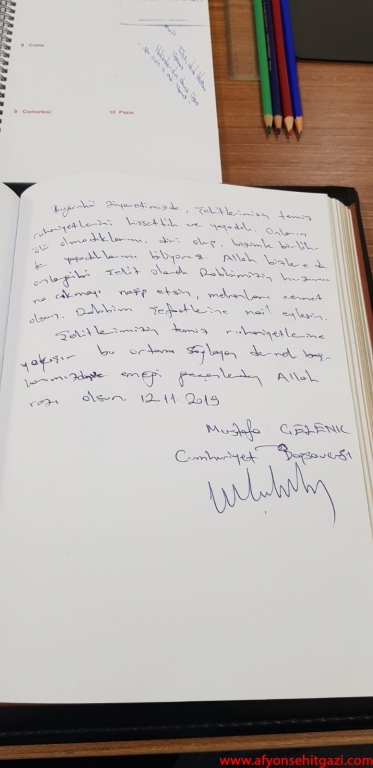 8 Cuma
9 Cumartesi
10 Pazar
Bugünkü ziyaretimizde, şehitlerimizin temiz
ruhaniyetlerini hissettik ve yaşadık. Onların
ölü olmadıklarını, diri olup, bizimle birlik-
te yaşadıklarını biliyoruz. Allah bizlere de
onlar gibi şehit olarak Rabbimizin huzuru
na çıkmayı nasip etsin, mekanları cennet
olsun. Rabbim şefaatlerine nail eylesin.
Şehitlerimizin temiz ruhaniyetlerine
yakışır bu ortamı sağlayan dernek baş-
kanımıza emeği geçenlerden Allah
razı olsun. 12.11.2019
Mustafa ÇELENK
Cumhuriyet Başsavcısı
www.afyonsehitgazi.com